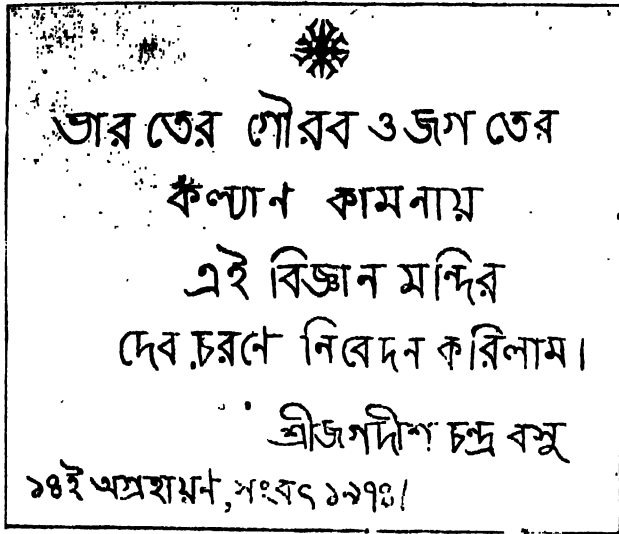 ভারতের গৌরব ও জগতের
কল্যাণ কামনায়
এই বিজ্ঞান মন্দির
দেব চরণে নিবেদন করিলাম।
শ্রীজগদীশ চন্দ্র বসু
১৪ই অগ্রহায়ণ, সংবৎ ১৯৭৪।